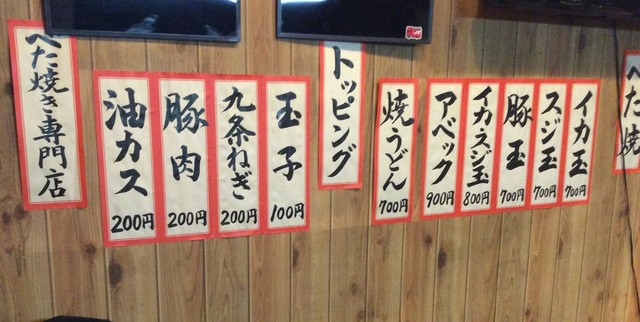 べた焼
イカ玉
700円
スジ玉
700円
豚玉
700円
イカスジ玉
800円
アベック
900円
焼うどん
700円
トッピング
玉子
100円
九条ねぎ
200円
豚肉
200円
油カス
200円
べた焼き専門店